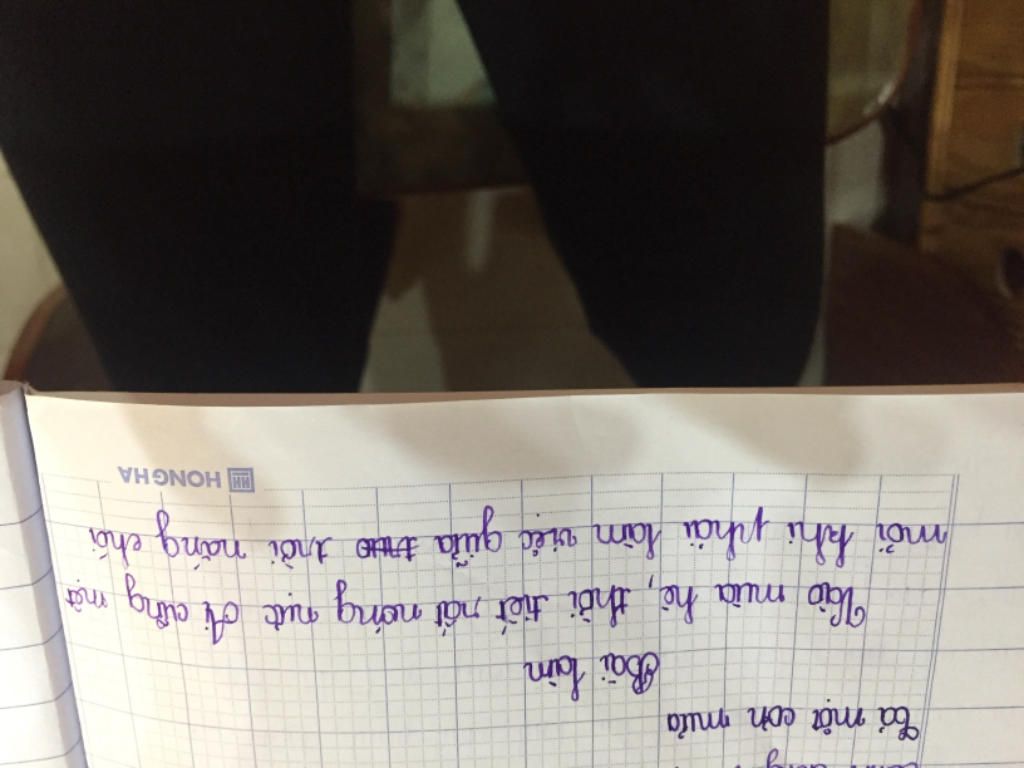 Tả một cơn mưa
Bài làm
Vào mùa hè, thời tiết rất nóng nực ai cũng mệt
mỏi khi phải làm việc giữa trời nắng chói
HONG HA